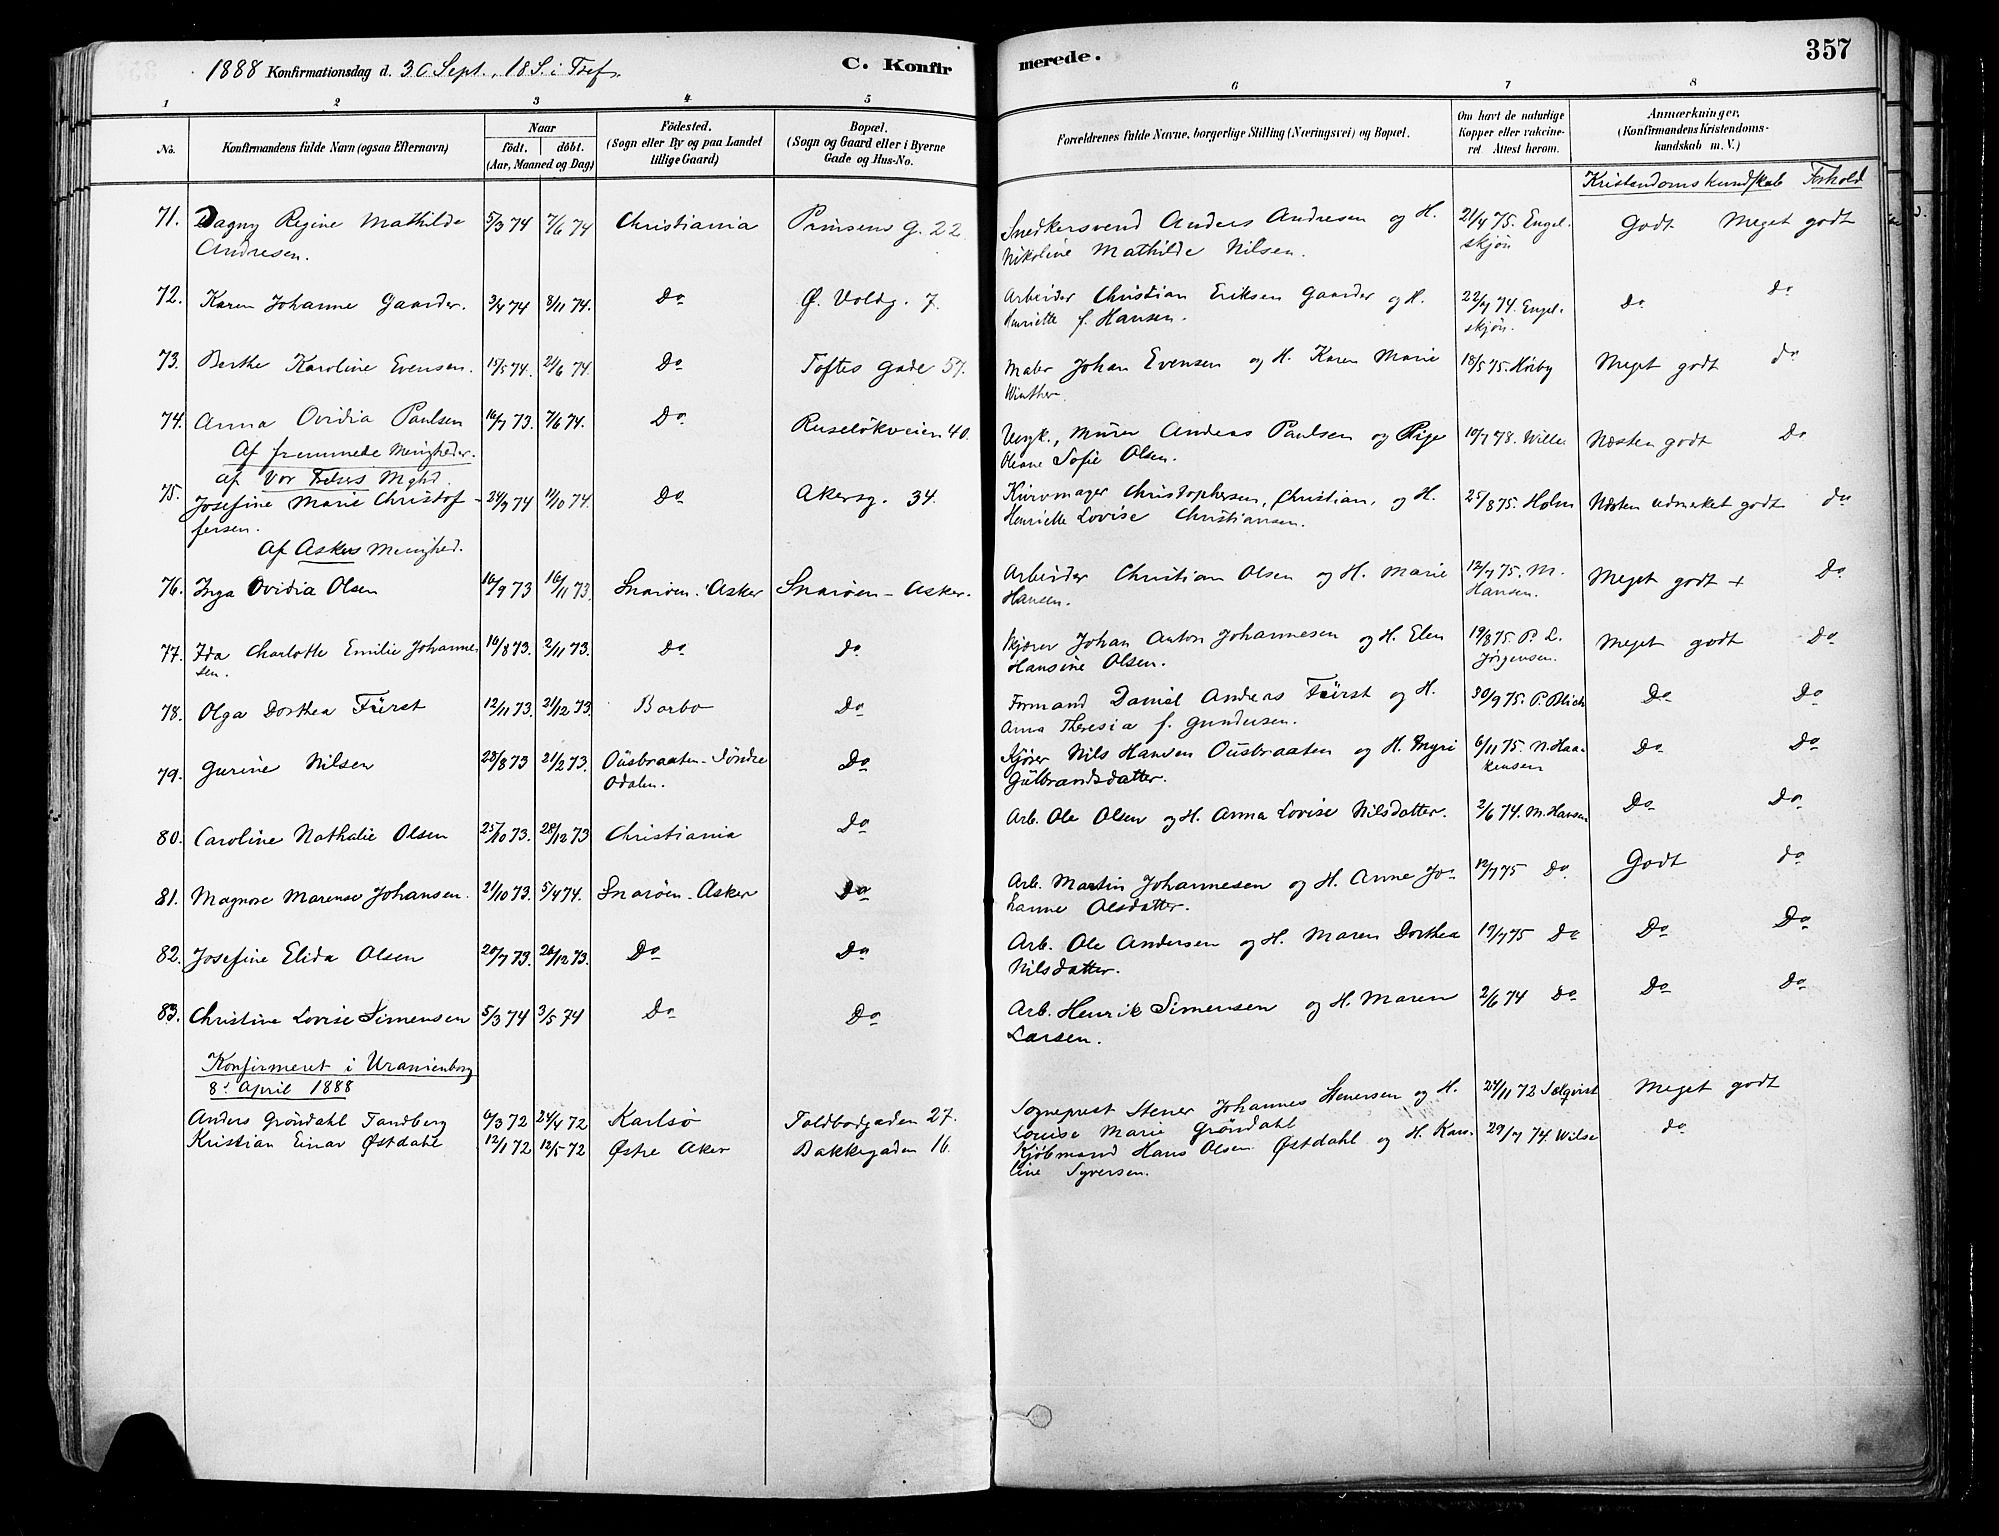 1888 Konfirmationsdag d. 30 Sept., 18 S. i Tref.
C. Konfirmerede.
357
1 2 3 4 5 6 7 8
No.
Konfirmandens fulde Navn (ogsaa Efternavn)
Naar
født. døbt.
(Aar, Maaned og Dag)
Födested.
(Sogn eller By og paa Landet
tillige Gaard)
Bopæl.
(Sogn og Gaard eller i Byerne
Gade og Hus-No.
Forældrenes fulde Navne, borgerlige Stilling (Næringsvei) og Bopæl.
Om havt de naturlige
Kopper eller vakcine-
ret. Attest herom.
Anmærkninger,
(Konfirmandens Kristendoms-
kundskab m. V.)
Kristendomskundskab Forhold
71. Dagny Regine Mathilde 5/3 74 7/6 74 Christiania Prinsens G. 22 Snedkersvend Anders Andresen og H. 21/4 75. Engel- Godt Meget godt
Andresen. Nikoline Mathilde Nilsen. skjøn
72. Karen Johanne Gaarder. 3/4 74 8/11 74. Do Ø. Voldg. 7. Arbeider Christian Eriksen Gaarder og H. 22/4 74. Engel- Do Do
Henriette f. Hansen. skjøn.
73. Berthe Karoline Evensen. 15/5 74. 21/6 74. Do Toftes Gade 57. Maler Johan Evensen og H. Karen Marie 18/5 75. Hörby Meget godt do
Winther.
74. Anna Ovidia Paulsen 16/7 73. 7/6 74. Do Ruselökveien 40. Ungk., Murer Anders Paulsen og Pige 10/7 78. Wille Næsten godt Do
Oleane Sofie Olsen.
Af fremmede Menigheder.
af Vor Frelsers Mghd.
75. Josefine Marie Christof- 24/9 74 11/10 74. Do Akersg. 34. Kurvmager Christophersen, Christian, og H. 25/8 75. Holm Næsten udmerket godt do
fersen. Henriette Lovise Christiansen.
Af Askers Menighed.
76. Inga Ovidia Olsen 16/9 73 16/11 73. Snaröen. Asker Snaröen - Asker. Arbeider Christian Olsen og H. Marie 12/7 75. M. Meget godt + Do
Hansen. Hansen.
77. Ida Charlotte Emilie Johanne- 16/8 73. 2/11 73. Do do Kjører Johan Anton Johannesen og H. Elen 19/8 75. P. L. Meget godt Do
sen. Hansine Olsen. Jörgensen.
78. Olga Dorthea Fürst 12/11 73. 21/12 73. Barbo Do Formand Daniel Andreas Fürst og H. 30/9 75. P. Blich Do Do
Anna Theresia f. Gundersen.
79. Gurine Nilsen 23/8 73 21/2 73. Ousbraaten - Söndre Do Kjörer Nils Hansen Ousbraaten og H. Myri 6/11 75. N. Haa- Do Do
Odalen. Gulbrandsdatter. kensen
80. Caroline Nathalie Olsen 25/10 73. 28/12 73 Christiania Do Arb. Ole Olsen og H. Anna Lovise Nilsdatter. 2/6 74. M. Hansen Do Do
81. Magnore Marense Johansen. 21/10 73. 5/4 74. Snaröen - Asker Do Arb. Martin Johannesen og H. Anne Jo- 12/7 75 Do Godt do
hanne Olsdatter.
82. Josefine Elida Olsen 20/7 73. 26/12 73. Do Do Arb. Ole Andersen og H. Maren Dorthea 19/7 75 Do Do Do
Nilsdatter.
83. Christine Lovise Simensen 5/3 74 3/5 74 Do Do Arb. Henrik Simensen og H. Maren 2/6 74 Do Do Do
Larsen.
Konfirmeret i Uranienborg
8. April 1888
Anders Gröndahl Tandberg 6/3 72 24/4 72 Karlsö Toldbodgaden 27. Sogneprest Stener Johannes Stenersen og H. 24/11 72 Sælqvist Meget godt
Louise Marie Gröndahl
Kristian Einar Østdahl 12/1 72 12/5 72 Østre Aker Bakkegaden 16. Kjöbmand Hans Olsen Østdahl og H. Karo- 29/7 74. Wilse do
line Syversen.